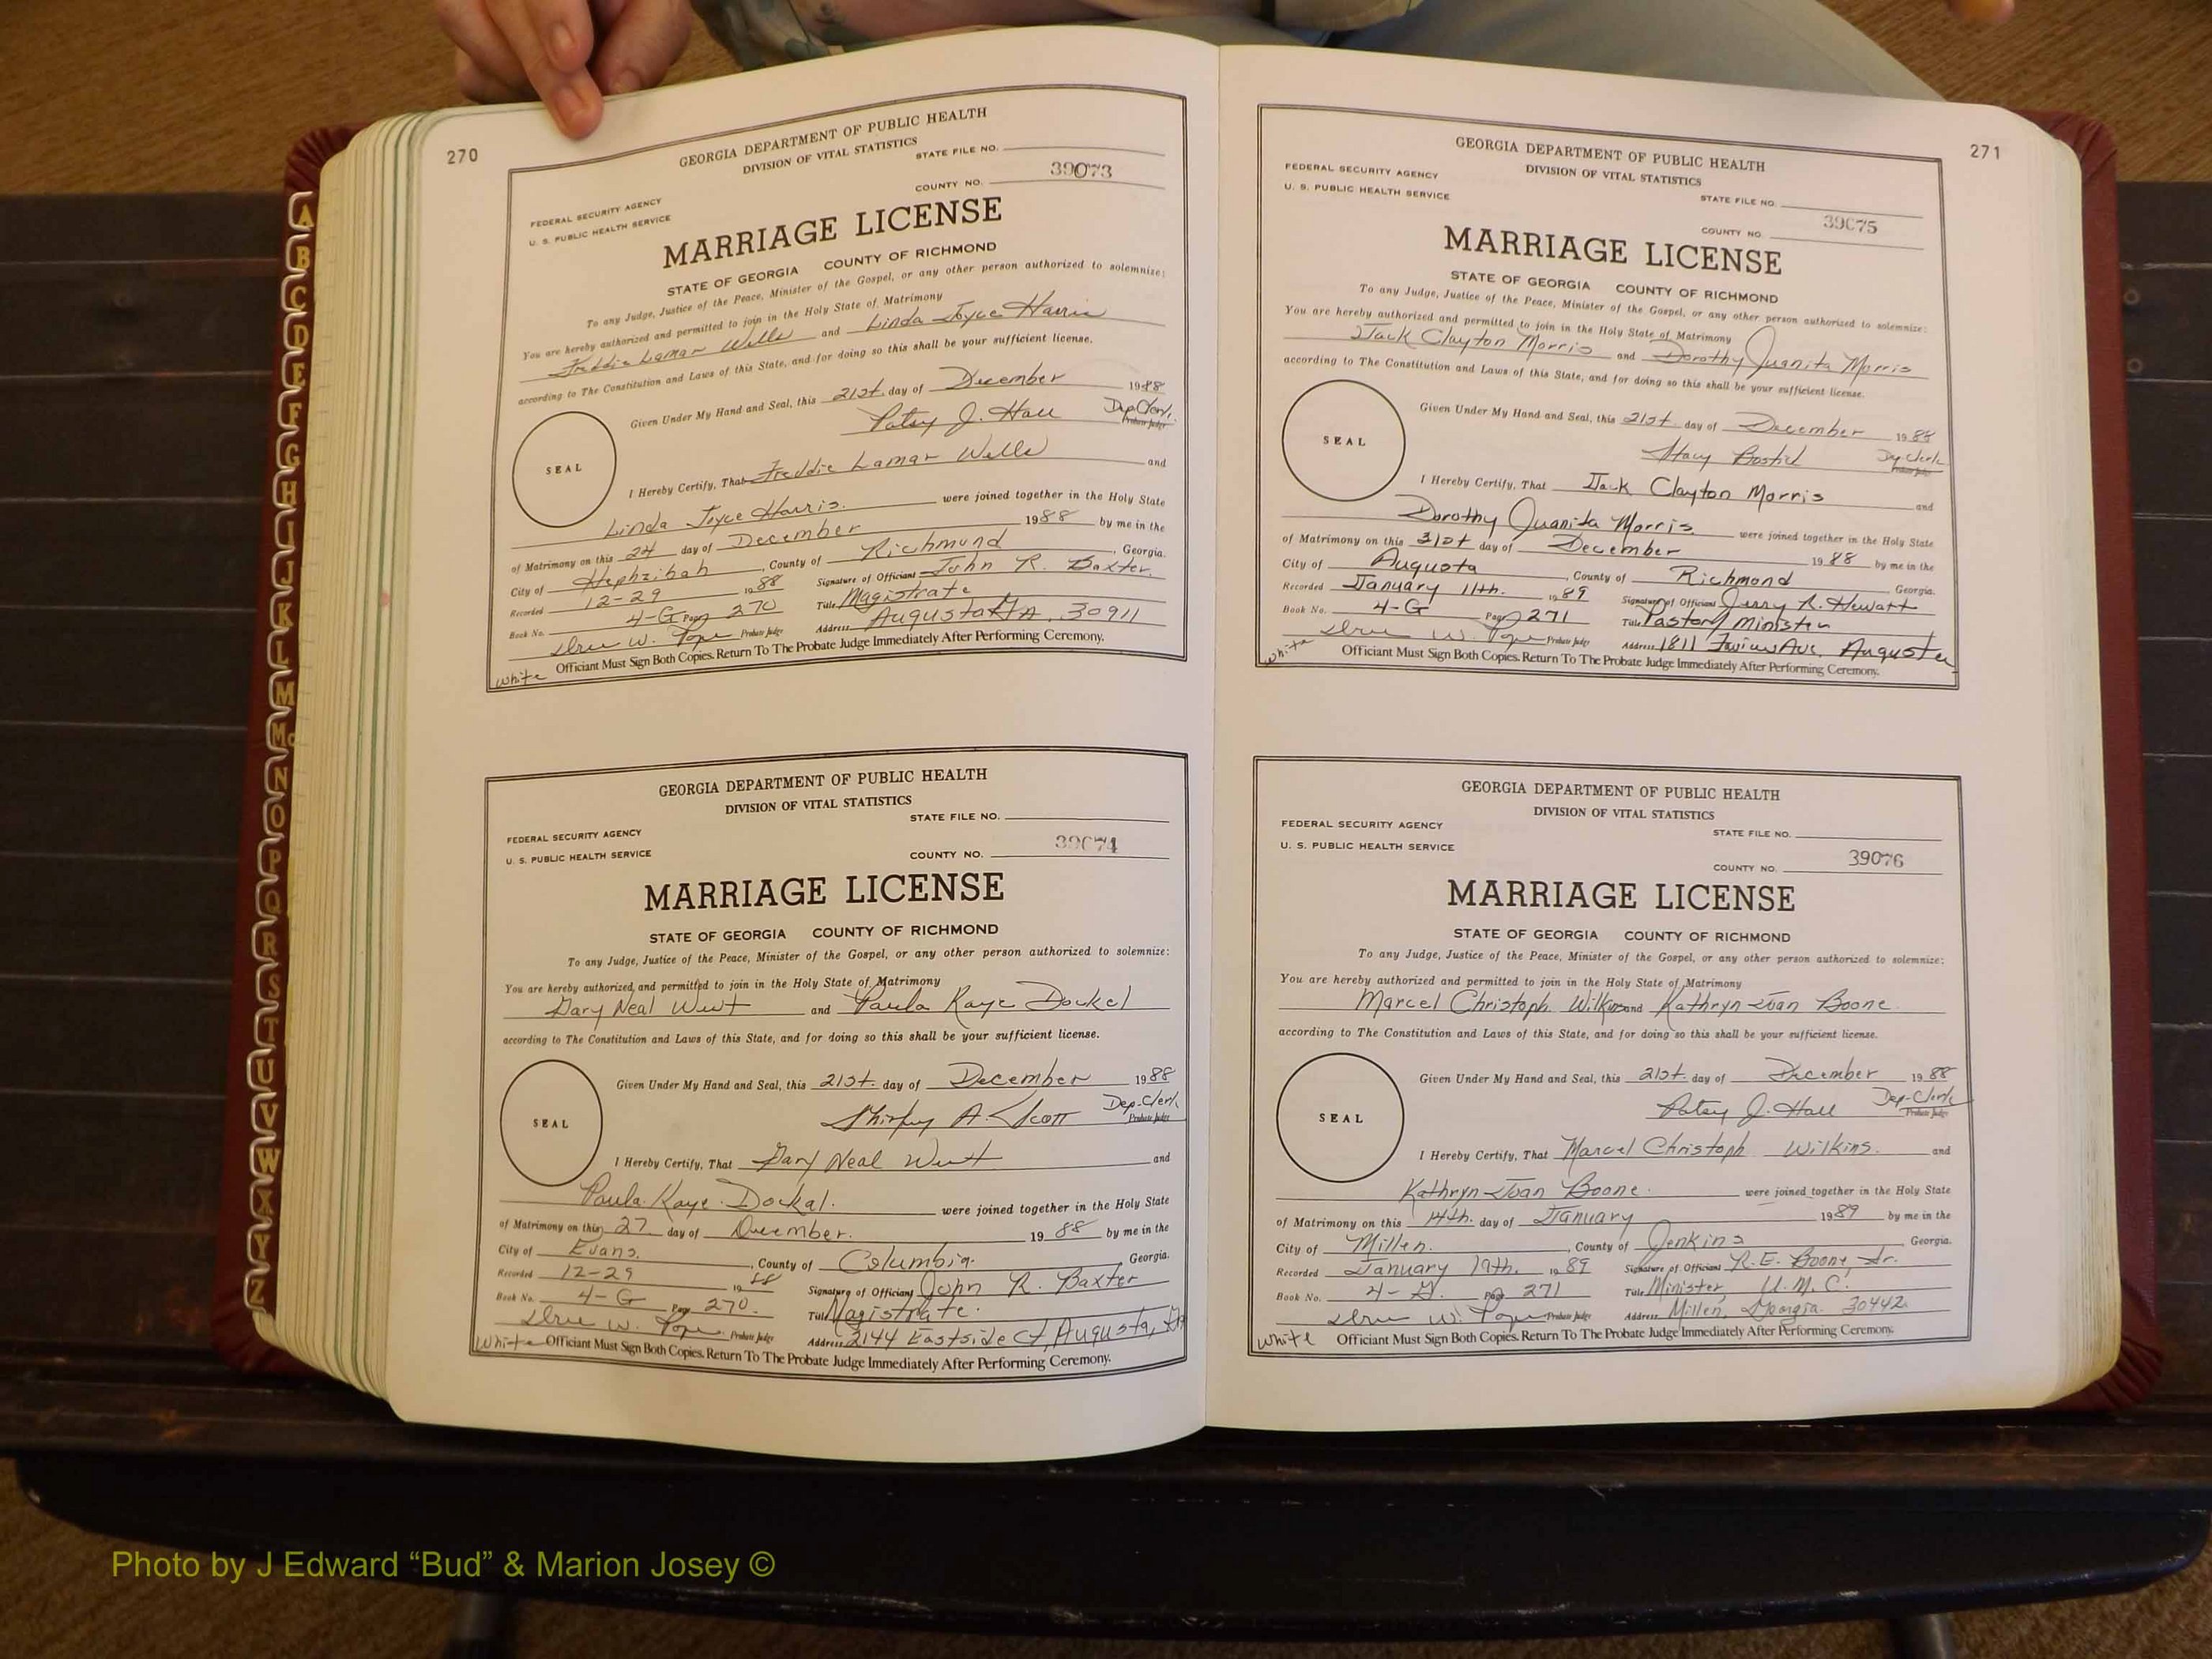 270
GEORGIA DEPARTMENT OF PUBLIC HEALTH
DIVISION OF VITAL STATISTICS
STATE FILE NO.
39073
COUNTY NO.
FEDERAL SECURITY AGENCY
U. S. PUBLIC HEALTH SERVICE
MARRIAGE LICENSE
STATE OF GEORGIA COUNTY OF RICHMOND
To any Judge, Justice of the Peace, Minister of the Gospel, or any other person authorized to solemnize:
You are hereby authorized and permitted to join in the Holy State of Matrimony
Freddie Lamar Wells and Linda Joyce Harris
according to The Constitution and Laws of this State, and for doing so this shall be your sufficient license.
Given Under My Hand and Seal, this 21st. day of December 1988
Patsy J. Hall Dep Clerk.
Probate Judge
SEAL
I Hereby Certify, That Freddie Lamar Wells and
Linda Joyce Harris. were joined together in the Holy State
of Matrimony on this 24 day of December 1988 by me in the
City of Hephzibah, County of Richmond, Georgia.
Recorded 12-29 1988 Signature of Officiant John R. Baxter.
Book No. 4-G Page 270 Title Magistrate
Probate Judge Address Augusta GA. 30911
Officiant Must Sign Both Copies. Return To The Probate Judge Immediately After Performing Ceremony.
White
GEORGIA DEPARTMENT OF PUBLIC HEALTH
DIVISION OF VITAL STATISTICS
STATE FILE NO.
FEDERAL SECURITY AGENCY
U. S. PUBLIC HEALTH SERVICE
39074
COUNTY NO.
MARRIAGE LICENSE
STATE OF GEORGIA COUNTY OF RICHMOND
To any Judge, Justice of the Peace, Minister of the Gospel, or any other person authorized to solemnize:
You are hereby authorized and permitted to join in the Holy State of Matrimony
Gary Neal West and Paula Kaye Dockal
according to The Constitution and Laws of this State, and for doing so this shall be your sufficient license.
Given Under My Hand and Seal, this 21st. day of December 1988
Shirley A. Scott Dep-Clerk
Probate Judge
SEAL
I Hereby Certify, That Gary Neal West and
Paula Kaye Dockal. were joined together in the Holy State
of Matrimony on this 27 day of December. 1988 by me in the
City of Evans, County of Columbia. Georgia.
Recorded 12-29 1988 Signature of Officiant John R. Baxter
Book No. 4-G Page 270. Title Magistrate.
Probate Judge Address 2144 Eastside Ct, Augusta, GA
White Officiant Must Sign Both Copies. Return To The Probate Judge Immediately After Performing Ceremony.
271
GEORGIA DEPARTMENT OF PUBLIC HEALTH
DIVISION OF VITAL STATISTICS
FEDERAL SECURITY AGENCY
U. S. PUBLIC HEALTH SERVICE
STATE FILE NO.
39075
COUNTY NO.
MARRIAGE LICENSE
STATE OF GEORGIA COUNTY OF RICHMOND
To any Judge, Justice of the Peace, Minister of the Gospel, or any other person authorized to solemnize:
You are hereby authorized and permitted to join in the Holy State of Matrimony
Jack Clayton Morris and Dorothy Juanita Morris
according to The Constitution and Laws of this State, and for doing so this shall be your sufficient license.
Given Under My Hand and Seal, this 21st day of December 1988
Stacy Bostick Dep Clerk
Probate Judge
SEAL
I Hereby Certify, That Jack Clayton Morris and
Dorothy Quanita Morris. were joined together in the Holy State
of Matrimony on this 31st day of December 1988 by me in the
City of Augusta, County of Richmond Georgia.
Recorded January 11th. 1989 Signature of Officiant Jerry R. Hewatt
Book No. 4-G Page 271 Title Pastor/Minister
Probate Judge Address 1811 Ave. Augusta
White Officiant Must Sign Both Copies. Return To The Probate Judge Immediately After Performing Ceremony.
GEORGIA DEPARTMENT OF PUBLIC HEALTH
DIVISION OF VITAL STATISTICS
FEDERAL SECURITY AGENCY
STATE FILE NO.
U. S. PUBLIC HEALTH SERVICE
39076
COUNTY NO.
MARRIAGE LICENSE
STATE OF GEORGIA COUNTY OF RICHMOND
To any Judge, Justice of the Peace, Minister of the Gospel, or any other person authorized to solemnize:
You are hereby authorized and permitted to join in the Holy State of Matrimony
Marcel Christoph Wilkins and Kathryn Joan Boone
according to The Constitution and Laws of this State, and for doing so this shall be your sufficient license.
Given Under My Hand and Seal, this 21st. day of December 1988
Patsy J. Hall Dep-Clerk
Probate Judge
SEAL
I Hereby Certify, That Marcel Christoph Wilkins. and
Kathryn Joan Boone. were joined together in the Holy State
of Matrimony on this 14th. day of January 1989 by me in the
City of Millen., County of Jenkins Georgia.
Recorded January 19th. 1989 Signature of Officiant R.E. Boone, Jr.
Book No. 4-G. Page 271 Title Minister, U.M.C.
Probate Judge Address Millen, Georgia 30442
White Officiant Must Sign Both Copies. Return To The Probate Judge Immediately After Performing Ceremony.
A
B
C
D
E
F
G
H
I
J
K
L
M
Mc
N
O
P
Q
R
S
T
U
V
W
X
Y
Z
Photo by J Edward “Bud” & Marion Josey ©